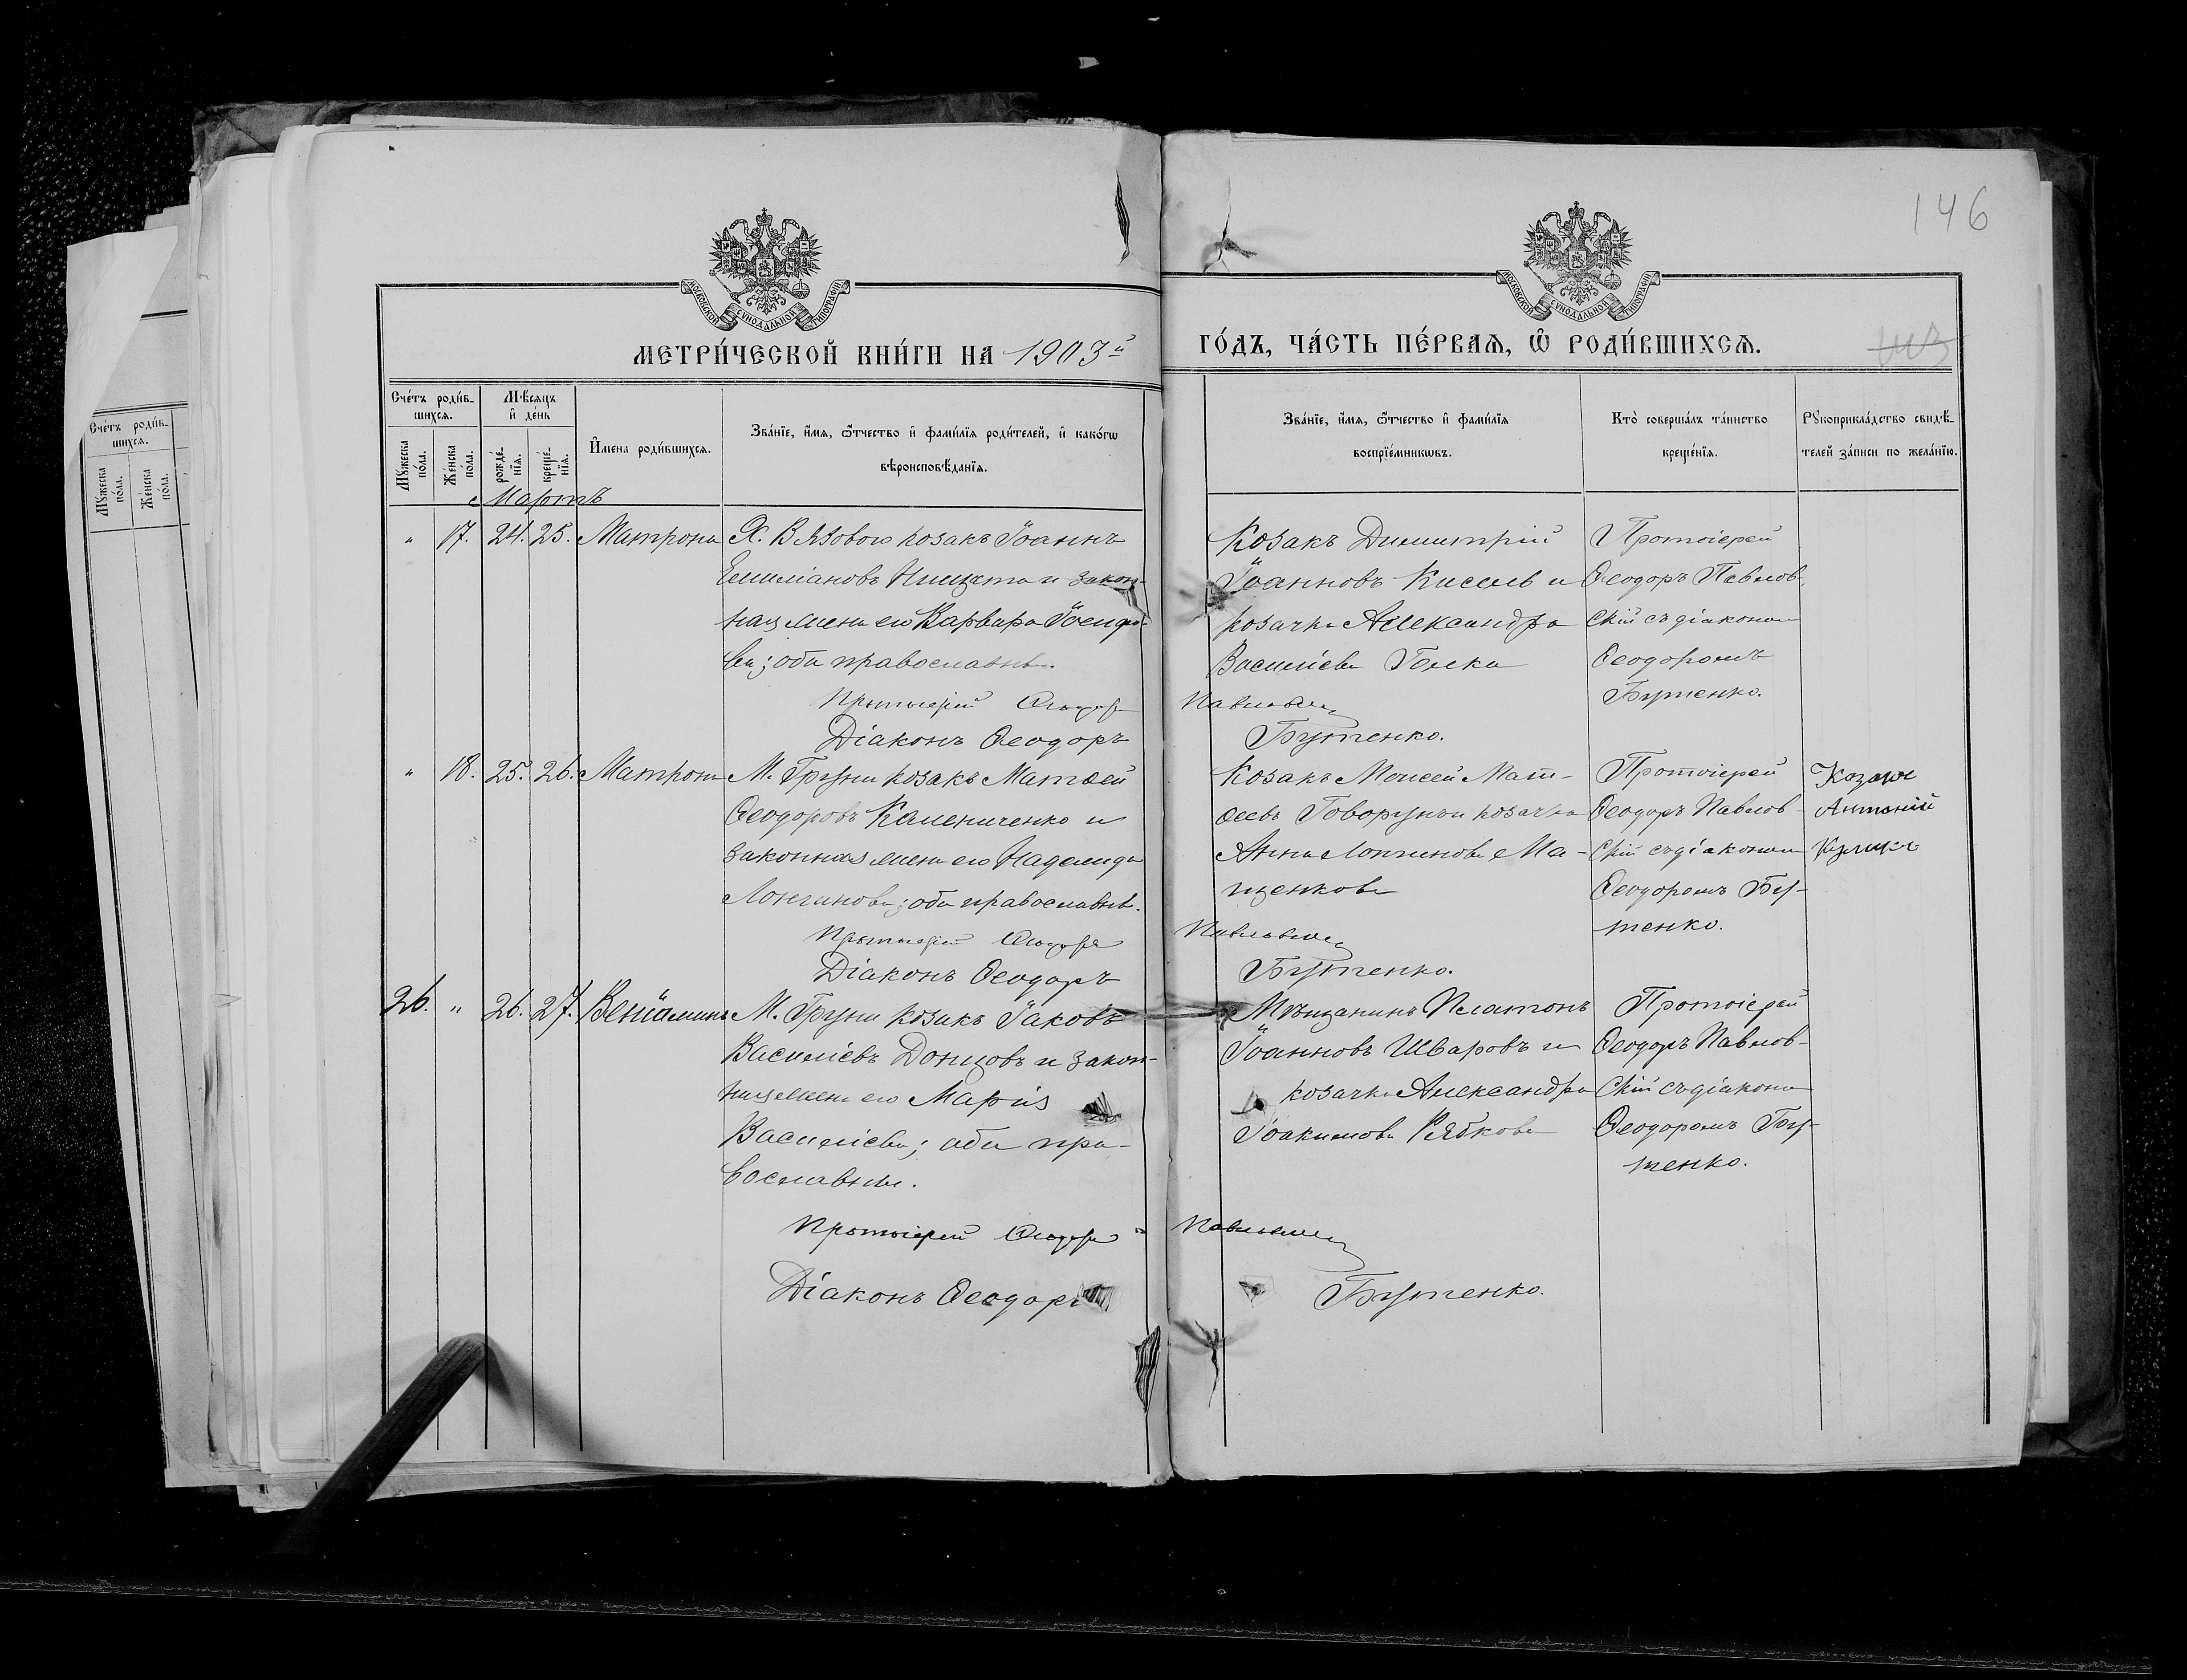 146
МОСКОВСКОЙ СѴНОДАЛЬНОЙ ТИПОГРАФІИ
МОСКОВСКОЙ СѴНОДАЛЬНОЙ ТИПОГРАФІИ
МЕТРИ́ЧЕСКОЙ КНИ́ГИ НА 1903й
ГО́ДЪ, ЧА́СТЬ ПЕ́РВАѦ, Ѡ҆ РОДИ́ВШИХСѦ.
Сче́тъ роди́в-
шихсѧ.
Мꙋ́жеска
по́ла.
Же́нска
по́ла.
Сче́тъ роди́в-
шихсѧ.
Мꙋ́жеска
по́ла.
Же́нска
по́ла.
Мѣ́сяцъ
и҆ де́нь
рожде́-
нїѧ.
креще́-
нїѧ.
И҆мена роди́вшихсѧ.
Зва́нїе, и҆́мѧ, ѻ҆́тчество и҆ фами́лїѧ роди́телей, и҆ како́гѡ
вѣроисповѣ́данїѧ.
Зва́нїе, и҆́мѧ, ѻ҆́тчество и҆ фами́лїѧ
воспрїе́мникѡвъ.
Кто̀ соверша́лъ та́инство
креще́нїѧ.
Рꙋкоприкла́дство свидѣ́-
телей за́писи по жела́нїю.
Мартъ
" 17. 24. 25. Матрона Х. Вязоваго козакъ Іоаннъ
Емиліановъ и закон-
ная жена его Варвара
ва; оба православные.
Протоіерей Ѳеодоръ
Діаконъ Ѳеодоръ
Козакъ Димитрій
Іоанновъ Кисель и
козачка Александра
Василіева
Павловскій
Бутенко.
Протоіерей
Ѳеодоръ Павлов-
скій съ діакономъ
Ѳеодоромъ
Бутенко.
" 18. 25. 26. Матрона М. Груни козакъ Матѳей
Ѳеодоровъ Калениченко и
законная жена его Надежда
Лонгинова; оба православные.
Протоіерей Ѳеодоръ
Діаконъ Ѳеодоръ
Козакъ Моисей Мат-
ѳеевъ Говорунъ и козачка
Анна Лонгинова Ма-
щенкова
Павловскій
Бутенко.
Протоіерей
Ѳеодоръ Павлов-
скій съ діакономъ
Ѳеодоромъ Бу-
тенко.
Козакъ
Антоній
26. " 26. 27. Веніаминъ М. Груни козакъ Іаковъ
Василіевъ Донцовъ и закон-
ная жена его Марія
Василіева; оба пра-
вославные.
Протоіерей Ѳеодоръ
Діаконъ Ѳеодоръ
Мѣщанинъ Платонъ
Іоанновъ Шваровъ и
козачка Александра
Іоакимова Рябкова
Павловскій
Бутенко.
Протоіерей
Ѳеодоръ Павлов-
скій съ діакономъ
Ѳеодоромъ Бу-
тенко.